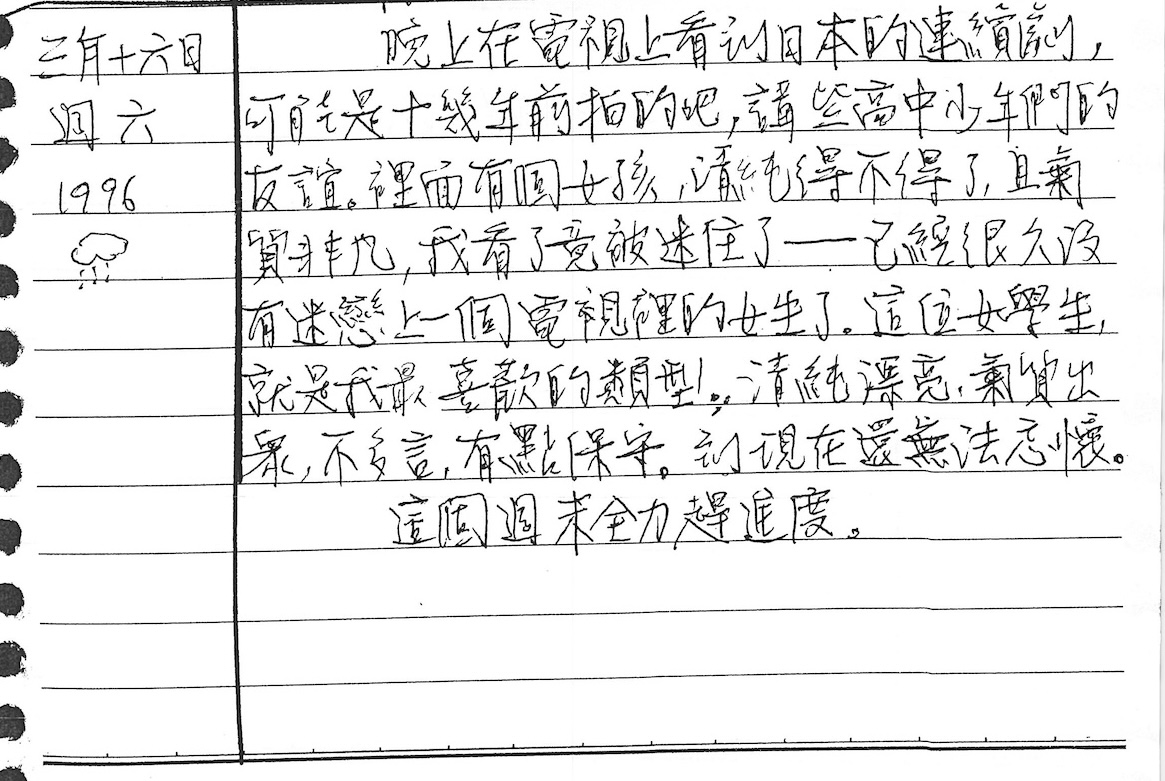 三年十六日
週六
1996
晚上在電視上看到日本的連續劇,
可能是十幾年前拍的吧,講些高中少年們的
友誼。裡面有個女孩,清純得不得了,且氣
質非凡,我看了竟被迷住了——已經很久沒
有迷戀上一個電視裡的女生了。這位女學生,
就是我最喜歡的類型!:清純漂亮,氣質出
眾,不多言,有點保守。到現在還無法忘懷。
這個週末全力趕進度。